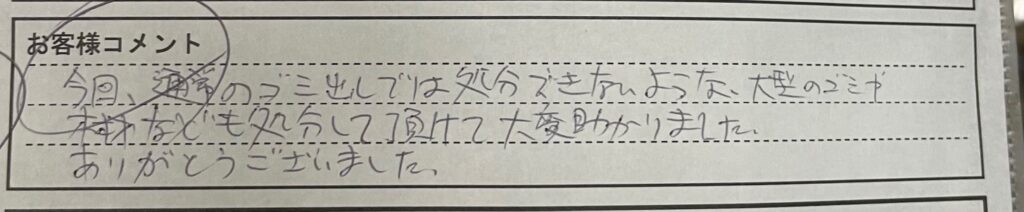 お客様コメント
今回、通常のゴミ出しでは処分できないような、大型のゴミや
木材なども処分して頂けて大変助かりました。
ありがとうございました。